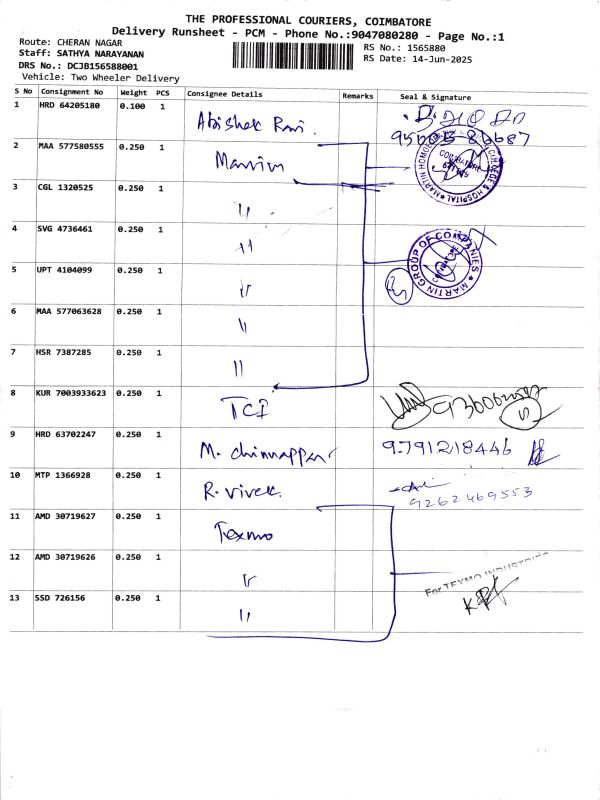 THE PROFESSIONAL COURIERS, COIMBATORE
Delivery Runsheet - PCM - Phone No.:9047080280 - Page No.:1
Route: CHERAN NAGAR
Staff: SATHYA NARAYANAN
DRS No.: DCJB156588001
Vehicle: Two Wheeler Delivery
RS No.: 1565880
RS Date: 14-Jun-2025
S No Consignment No Weight PCS Consignee Details Remarks Seal & Signature
1 HRD 64205180 0.100 1
2 MAA 577580555 0.250 1
3 CGL 1320525 0.250 1 "
4 SVG 4736461 0.250 1 "
5 UPT 4104099 0.250 1 "
6 MAA 577063628 0.250 1 "
7 HSR 7387285 0.250 1 "
MARTIN GROUP OF COMPANIES
8 KUR 7003933623 0.250 1 TCI
9 HRD 63702247 0.250 1 M. Chinnappan 9791218446
10 MTP 1366928 0.250 1 R. Vivek. 9262469553
11 AMD 30719627 0.250 1 Texmo
12 AMD 30719626 0.250 1 "
For TEXMO INDUSTRIES
13 SSD 726156 0.250 1 "